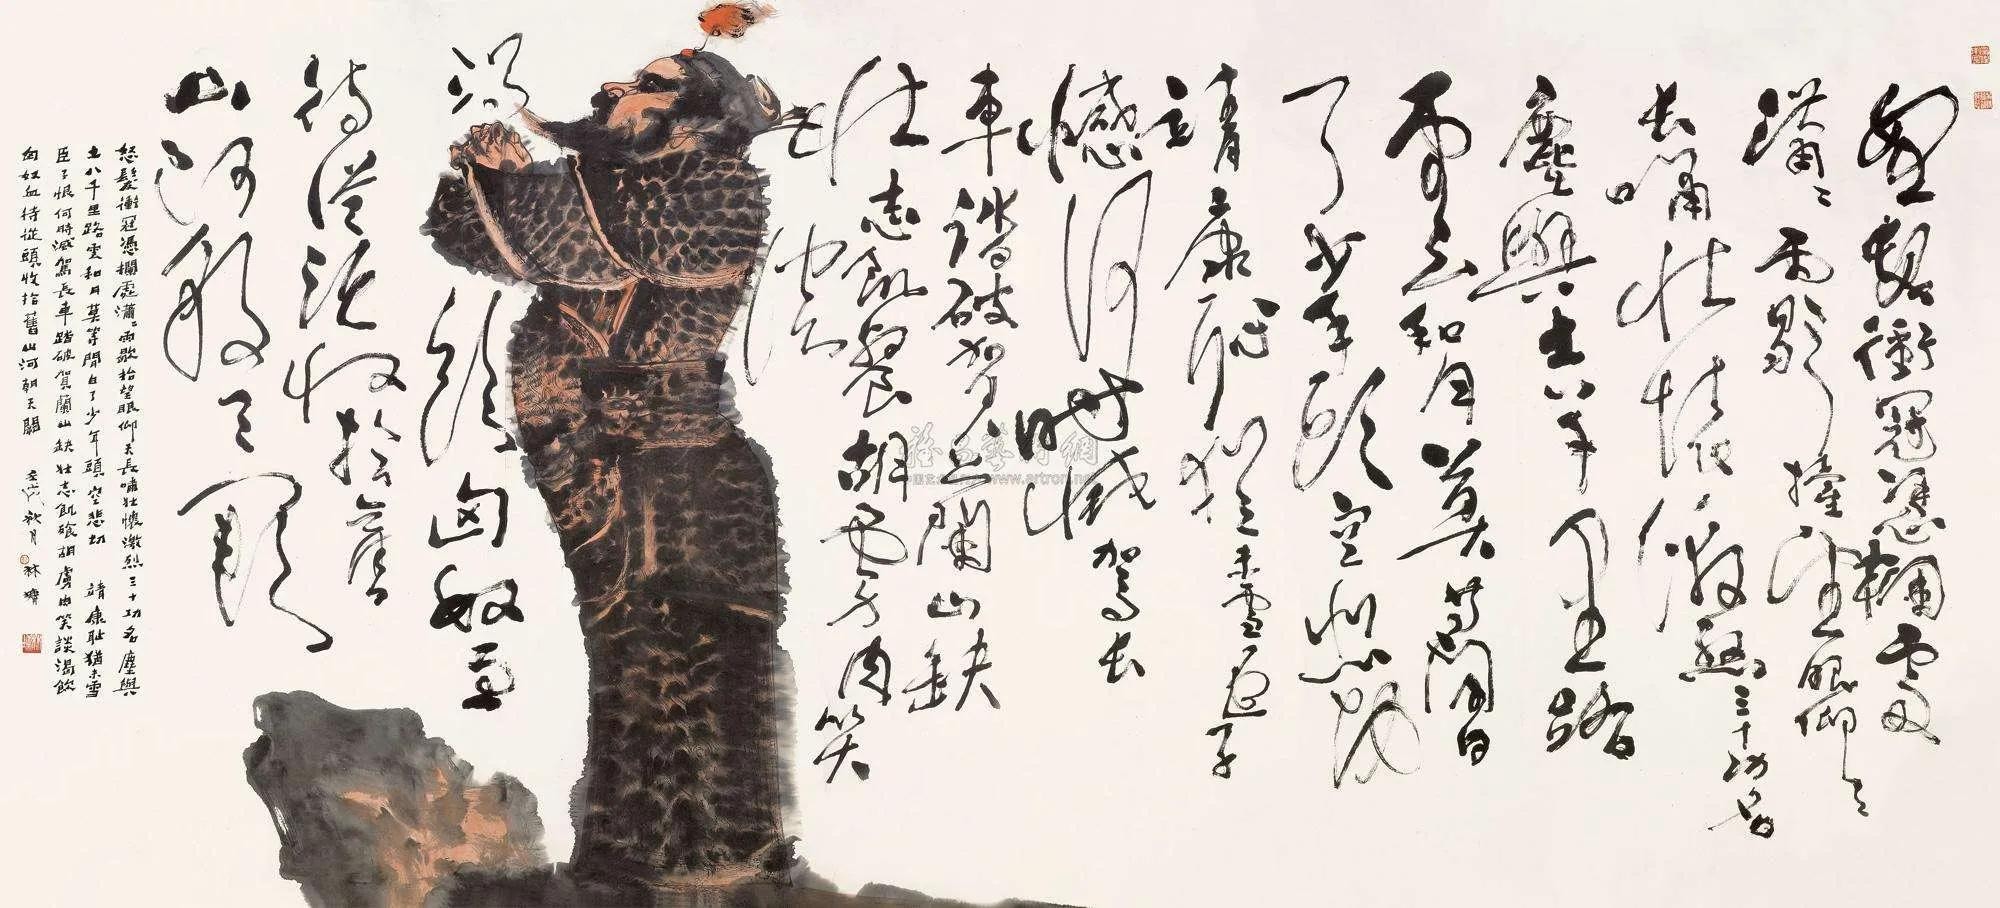 怒髮衝冠憑欄處
瀟瀟雨歇擡望眼仰天
長嘯壯懷激烈三十功名
塵與土八千里路
雲和月莫等閒白
了少年頭空悲切
靖康恥猶未雪臣子
憾何時滅駕長
車踏破賀蘭山缺
壯志飢餐胡虜肉笑
談
渴
飲匈奴血
待從頭收拾舊
山河朝天闕
怒髮衝冠憑欄處瀟瀟雨歇抬望眼仰天長嘯壯懷激烈三十功名塵與
土八千里路雲和月莫等閒白了少年頭空悲切 靖康耻猶未雪
臣子恨何時滅駕長車踏破賀蘭山缺壯志飢飡胡虜肉笑談渴飲
匈奴血待從頭收拾舊山河朝天闕 壬戌秋月 林墉
雅昌藝術網
www.artron.net